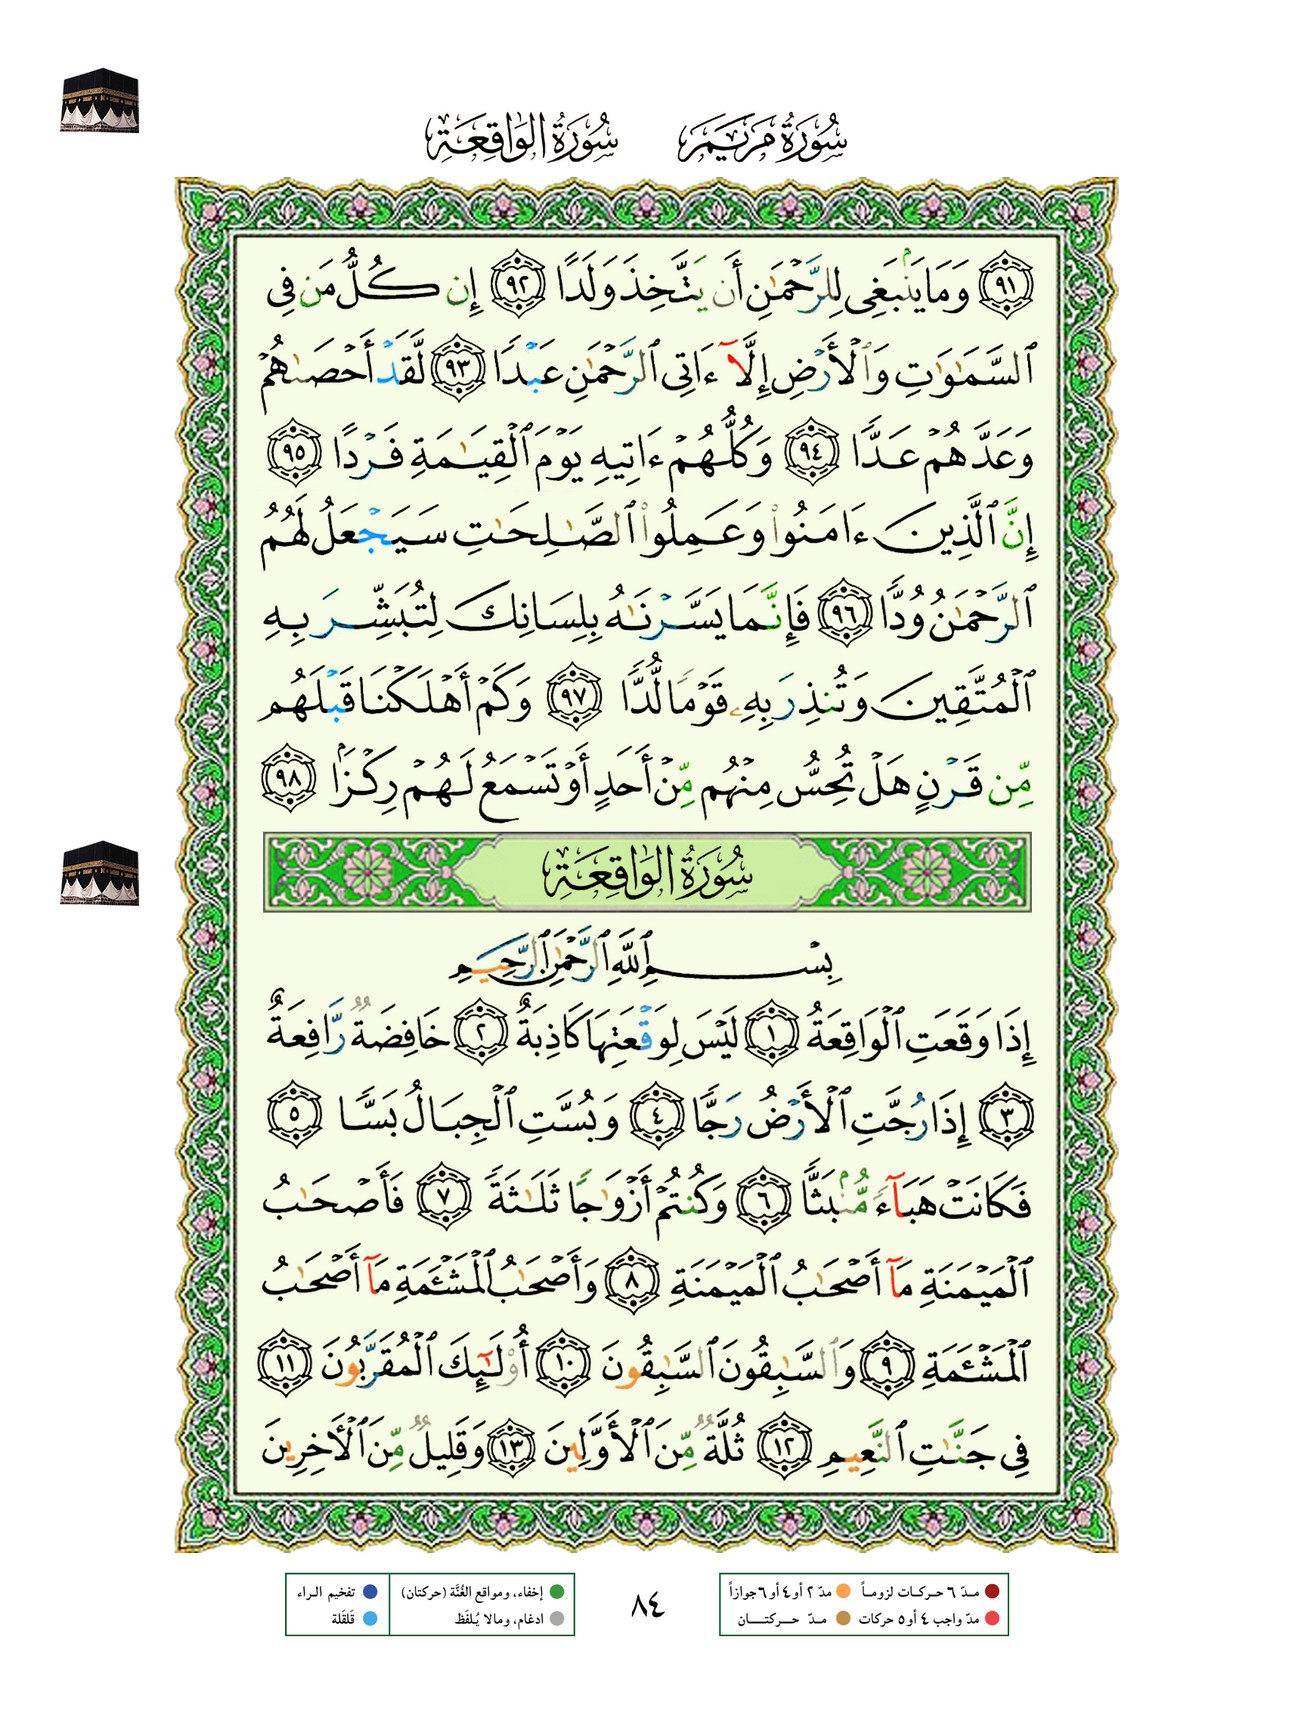 سُورَةُ مَرْيَمَ سُورَةُ الوَاقِعَةِ
٩١ وَمَا يَنۢبَغِى لِلرَّحْمَٰنِ أَن يَتَّخِذَ وَلَدًا ٩٢ إِن كُلُّ مَن فِى
ٱلسَّمَٰوَٰتِ وَٱلْأَرْضِ إِلَّآ ءَاتِى ٱلرَّحْمَٰنِ عَبْدًا ٩٣ لَّقَدْ أَحْصَىٰهُمْ
وَعَدَّهُمْ عَدًّا ٩٤ وَكُلُّهُمْ ءَاتِيهِ يَوْمَ ٱلْقِيَٰمَةِ فَرْدًا ٩٥
إِنَّ ٱلَّذِينَ ءَامَنُوا۟ وَعَمِلُوا۟ ٱلصَّٰلِحَٰتِ سَيَجْعَلُ لَهُمُ
ٱلرَّحْمَٰنُ وُدًّا ٩٦ فَإِنَّمَا يَسَّرْنَٰهُ بِلِسَانِكَ لِتُبَشِّرَ بِهِ
ٱلْمُتَّقِينَ وَتُنذِرَ بِهِۦ قَوْمًا لُّدًّا ٩٧ وَكَمْ أَهْلَكْنَا قَبْلَهُم
مِّن قَرْنٍ هَلْ تُحِسُّ مِنْهُم مِّنْ أَحَدٍ أَوْ تَسْمَعُ لَهُمْ رِكْزًۢا ٩٨
سُورَةُ الوَاقِعَةِ
بِسْمِ ٱللَّهِ ٱلرَّحْمَٰنِ ٱلرَّحِيمِ
إِذَا وَقَعَتِ ٱلْوَاقِعَةُ ١ لَيْسَ لِوَقْعَتِهَا كَاذِبَةٌ ٢ خَافِضَةٌ رَّافِعَةٌ
٣ إِذَا رُجَّتِ ٱلْأَرْضُ رَجًّا ٤ وَبُسَّتِ ٱلْجِبَالُ بَسًّا ٥
فَكَانَتْ هَبَآءً مُّنۢبَثًّا ٦ وَكُنتُمْ أَزْوَٰجًا ثَلَٰثَةً ٧ فَأَصْحَٰبُ
ٱلْمَيْمَنَةِ مَآ أَصْحَٰبُ ٱلْمَيْمَنَةِ ٨ وَأَصْحَٰبُ ٱلْمَشْـَٔمَةِ مَآ أَصْحَٰبُ
ٱلْمَشْـَٔمَةِ ٩ وَٱلسَّٰبِقُونَ ٱلسَّٰبِقُونَ ١٠ أُو۟لَٰٓئِكَ ٱلْمُقَرَّبُونَ ١١
فِى جَنَّٰتِ ٱلنَّعِيمِ ١٢ ثُلَّةٌ مِّنَ ٱلْأَوَّلِينَ ١٣ وَقَلِيلٌ مِّنَ ٱلْءَاخِرِينَ
مدّ ٦ حركات لزوماً مدّ ٢ أو ٤ أو ٦ جوازاً
مدّ واجب ٤ أو ٥ حركات مدّ حركتان
٨٤
إخفاء، ومواقع الغُنَّة (حركتان) تفخيم الراء
ادغام، ومالا يُلفَظ قَلقَلة